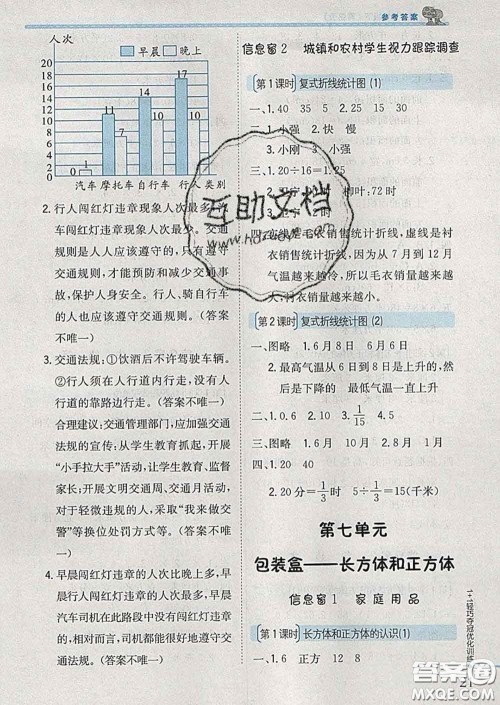 参考答案
人次
早晨 晚上
20
18
16
14
12
10
8
6
4
2
0
0 1 11 7 14 17 13
汽车 摩托车 自行车 行人 类别
2. 行人闯红灯违章现象人次最多,
车闯红灯违章现象人次最少。交通
规则是人人应该遵守的,只有遵守
交通规则,才能预防和减少交通事
故,保护人身安全。行人、骑自行车
的人也应该遵守交通规则。(答案
不唯一)
3. 交通法规:①饮酒后不许驾驶车辆。
②行人须在人行道内行走,没有人行道
的靠路边行走。(答案不唯一)
合理建议:交通管理部门,应加大交通
法规的宣传,从学生教育抓起,开展
“小手拉大手”活动,让学生教育、监督
家长;开展文明交通周、交通月活动,
对于轻微违规的人,采取“我来做交
警”等换位处罚方式等。(答案不
唯一)
4. 早晨闯红灯违章的人次比晚上多,
早晨闯红灯违章的人次最多,早晨
汽车司机在此路段中没有出现闯红
灯的现象,司机都能很好地遵守交
通规则。(答案不唯一)
信息窗2 城镇和农村学生视力跟踪调查
第1课时 复式折线统计图(1)
一、1. 40 35 5 2. 25 15 30
二、1. 小强 2. 快 慢
3. 小刚 小强
三、1. 20÷16=1.25
2.
3. 72时
四、实线是毛衣销售统计折线,虚线是衬
衣销售统计折线,因为从7月到12月
气温越来越冷,所以毛衣销量越来越
大,衬衣销量越来越小。
第2课时 复式折线统计图(2)
一、1. 图略 1. 6月8日 6月6日
2. 最高气温从6日到8日是上升的,然
后下降的 最低气温一直是上升的
二、1. 0.6 2. 40 3. 1/15 4. 2
三、1. 图略 1. 10月 2. 8月 1月
四、1. 21
2. 20分=1/3时 5÷1/3=15(千米)
第七单元
包装盒——长方体和正方体
信息窗1 家庭用品
第1课时 长方体和正方体的认识(1)
一、1. 6 正方 12 8
1+1轻巧夺冠优化训练
21
互助文档
答案圈
MXQE.COM